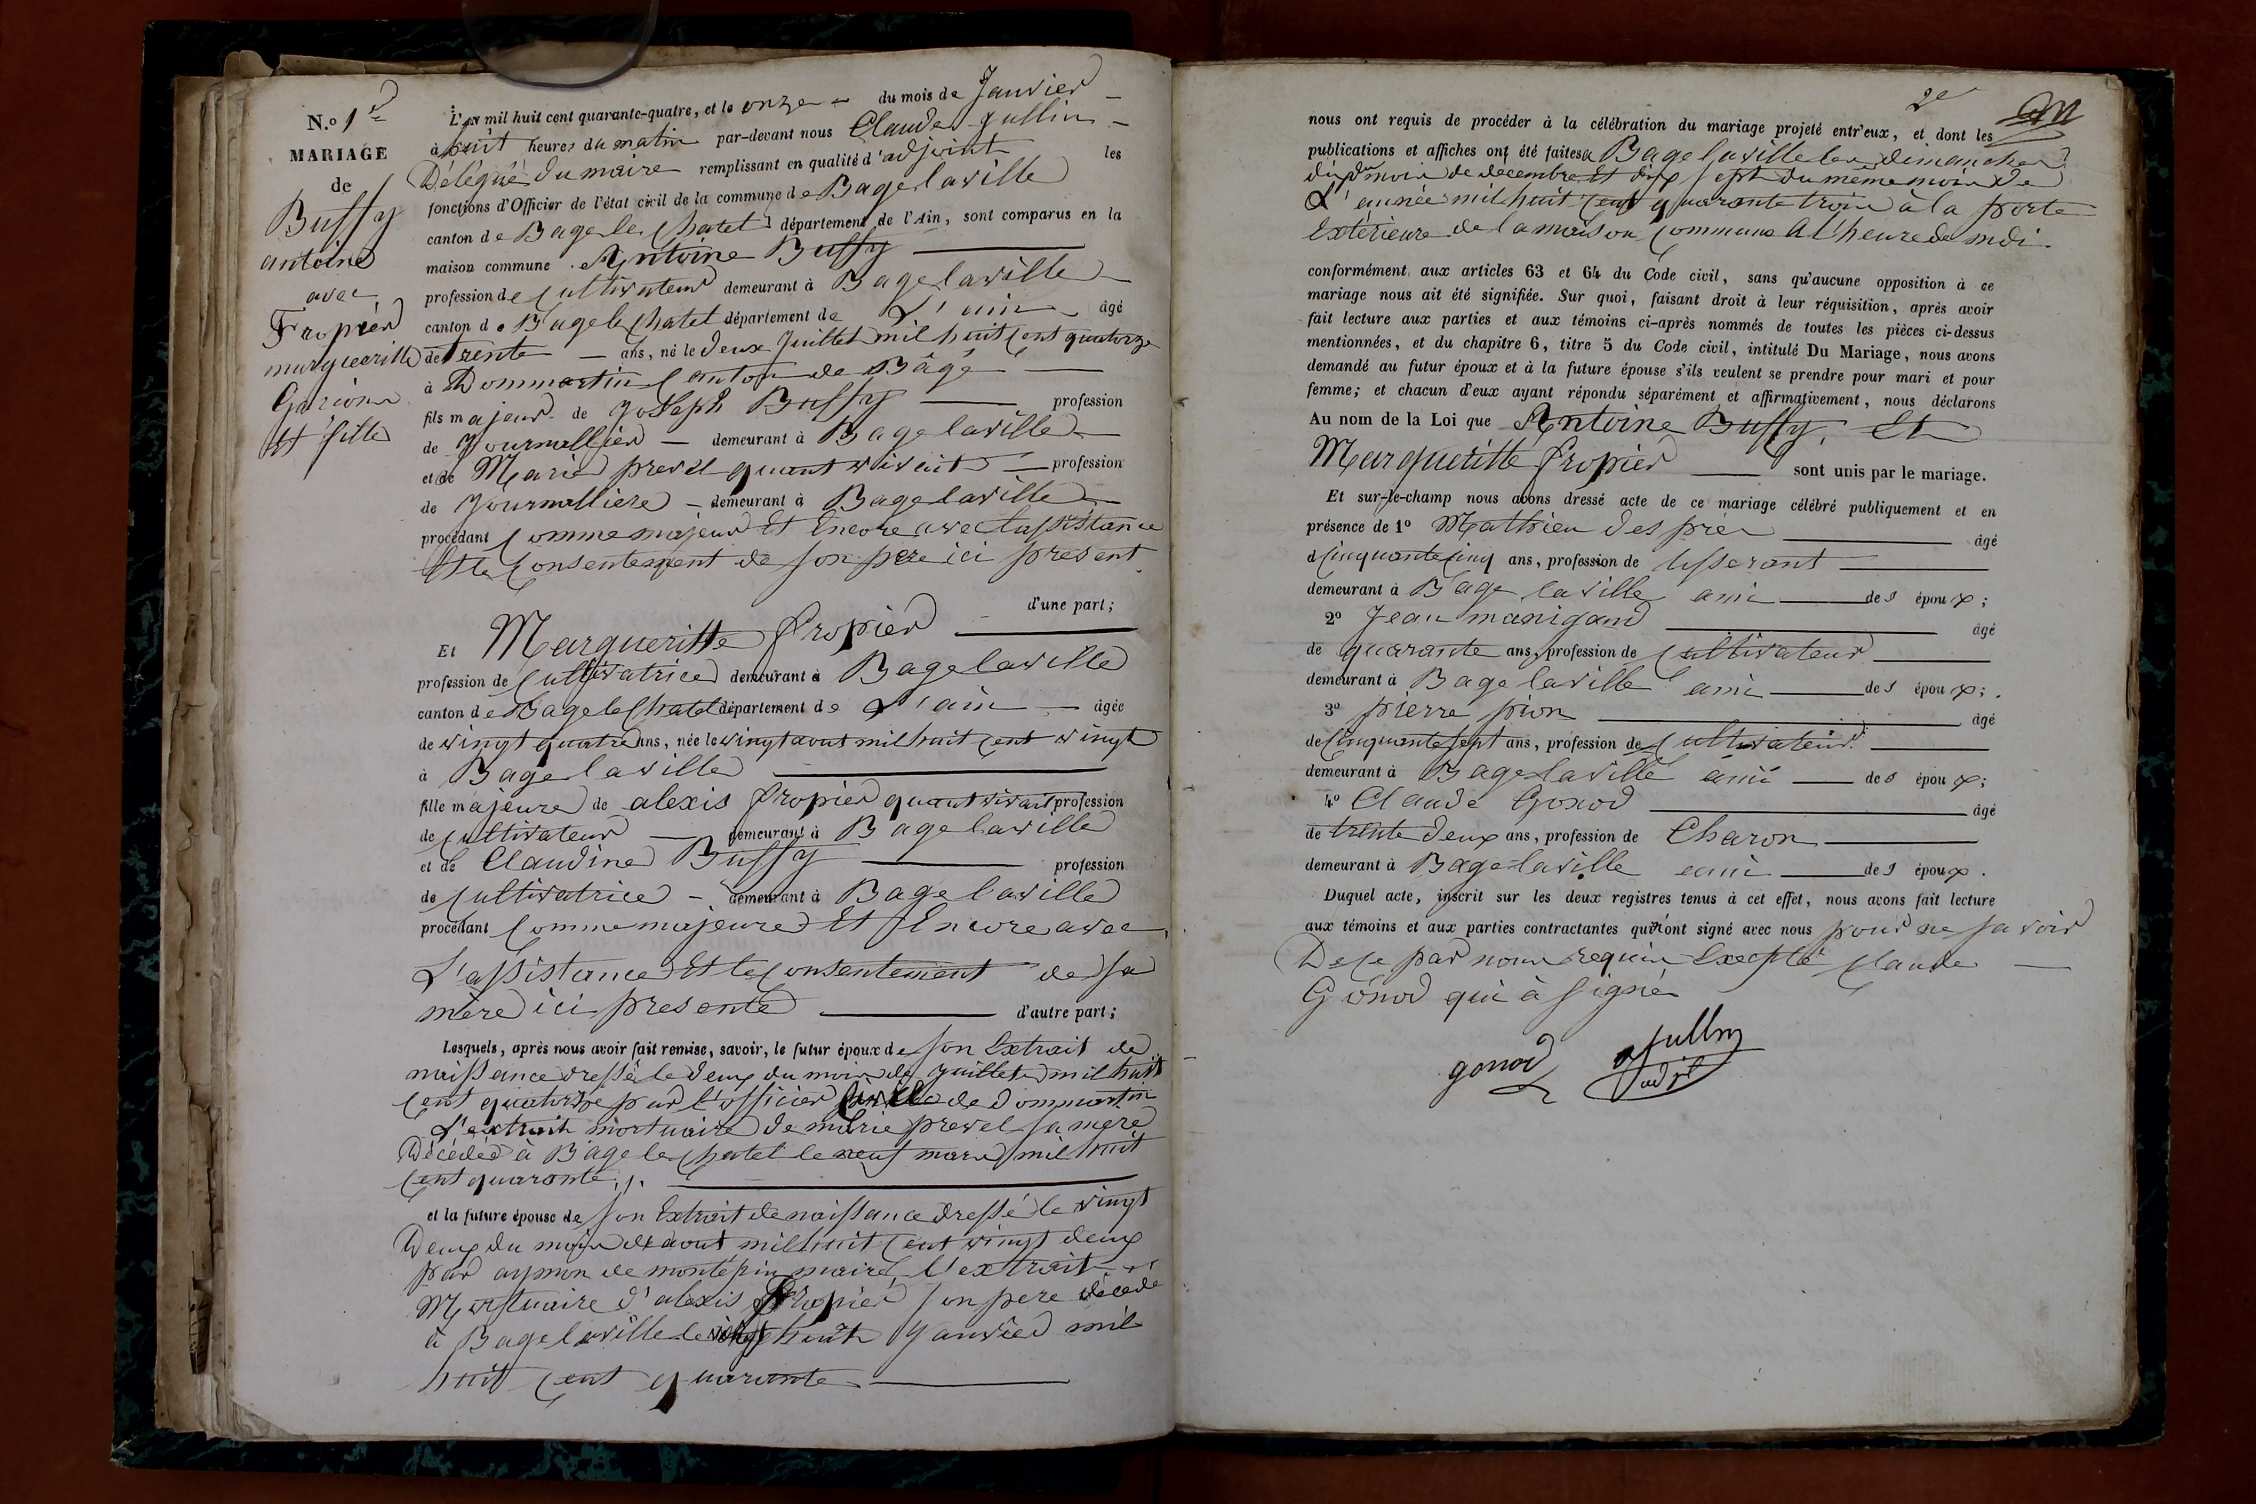 N.o 1er
MARIAGE
de
Buffy
antoine
avec
Fropier
margueritte
Garcion
et fille
L'an mil huit cent quarante-quatre, et le onze du mois de Janvier
à huit heures du matin par-devant nous Claude Jullin
Délégué du maire remplissant en qualité d'adjoint les
fonctions d'Officier de l'état civil de la commune de Bage laville
canton de Bage le Chatel département de l'Ain, sont comparus en la
maison commune Antoine Buffy
profession de Cultivateur demeurant à Bage laville
canton de Bage le Chatel département de L'ain âgé
de trente ans, né le deux Juillet mil huit cent quatorze
à Dommartin Canton de Bâgé
fils majeur de Joseph Buffy profession
de Journallier demeurant à Bage laville
et de Marie prevel quant vivait profession
de Journalliere demeurant à Bage laville
procédant Comme majeur Et Encore avec lassistance
Et le Consentement de son pere ici present
d'une part;
Et Margueritte fropier
profession de Cultivatrice demeurant à Bage laville
canton de Bage le Chatel département de L'ain âgée
de vingt quatre ans, née le vingt aout mil huit cent vingt
à Bage laville
fille majeure de alexis fropier quant vivait profession
de Cultivateur demeurant à Bage laville
et de Claudine Buffy profession
de Cultivatrice demeurant à Bage laville
procédant Comme majeure Et Encore avec
L'assistance Et le Consentement de sa
mère ici presente d'autre part;
Lesquels, après nous avoir fait remise, savoir, le futur époux de son Extrait de
naissance dressé le deux du mois de Juillet mil huit
Cent quatorze par l'officier Civil de dommartin
L'extrait mortuaire de marie prevel sa mere
Décédée à Bage le Chatel le neuf mars mil huit
Cent quarante
et la future épouse de son Extrait de naissance dressé le vingt
Deux du mois de aout mil huit Cent vingt deux
par aymon de montépin maire, l'extrait
Mortuaire d'alexis fropier son pere décédé
à Bage laville le vingt huit Janvier mil
huit Cent quarante
2e
nous ont requis de procéder à la célébration du mariage projeté entr'eux, et dont les
publications et affiches ont été faites à Bage laville les dimanches
dix du mois de decembre Et dix sept du même mois de
L'année mil huit Cent quarante trois à la porte
Extérieure de la maison Commune A l'heure de midi.
conformément aux articles 63 et 64 du Code civil, sans qu'aucune opposition à ce
mariage nous ait été signifiée. Sur quoi, faisant droit à leur réquisition, après avoir
fait lecture aux parties et aux témoins ci-après nommés de toutes les pièces ci-dessus
mentionnées, et du chapitre 6, titre 5 du Code civil, intitulé Du Mariage, nous avons
demandé au futur époux et à la future épouse s'ils veulent se prendre pour mari et pour
femme; et chacun d'eux ayant répondu séparément et affirmativement, nous déclarons
Au nom de la Loi que Antoine Buffy, Et
Margueritte fropier sont unis par le mariage.
Et sur-le-champ nous avons dressé acte de ce mariage célébré publiquement et en
présence de 1o Mathieu des près âgé
d Cinquante Cinq ans, profession de tisserant
demeurant à Bage laville ami des époux;
2o Jean manigand âgé
de quarante ans, profession de Cultivateur
demeurant à Bage laville ami des époux;
3o pierre pion âgé
de Cinquante sept ans, profession de Cultivateur
demeurant à Bage laville ami des époux;
4o Claude Gonod âgé
de trente deux ans, profession de Charon
demeurant à Bage laville ami des époux.
Duquel acte, inscrit sur les deux registres tenus à cet effet, nous avons fait lecture
aux témoins et aux parties contractantes qui n'ont signé avec nous pour ne savoir
De ce par nous requis Excepté Claude
Gonod qui à signé
gonod Jullin
adjt